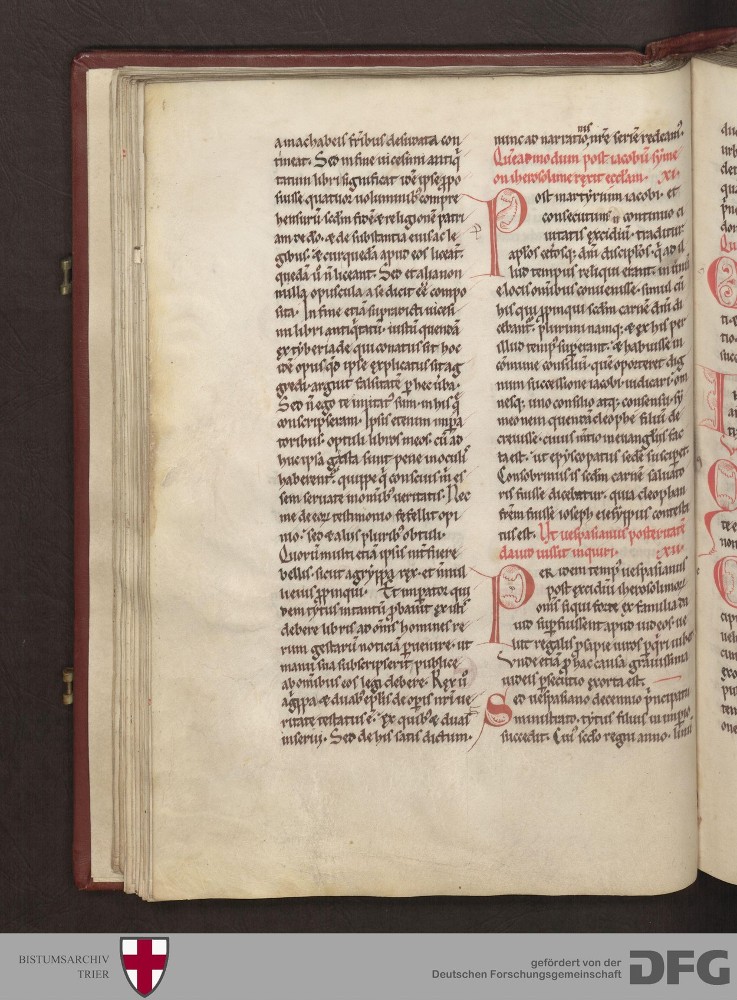 a machabeis fr̄ibus desudata con
tineat. Sed in fine uicesimi antiq̄
tatum libri significat idē ipse ꝓpo
suisse quatuor uoluminibꝰ compre
hensurū scdm̄ fidē & religionē patri
am de dō. & de substantia eius ac le
gibus. & cur quedā apud eos liceat.
quedā ū n̄ liceant. Sed et alia non
nulla opuscula a se dicit eē compo
sita. In fine etiā supradicti uicesi
mi libri antiq̄tatū. iustū quendā
ex tyberiade qui conatus sit hoc
idē opus qd̓ ipse explicatus sit ag
gredi. arguit falsitatē ꝑ hec ūba.
Sed n̄ ego te imitatꝰ sum. in his q̄
conscripseram. Ipsis etenim impa
toribus. optuli libros meos. cū ad
huc ipsa gesta sunt pene in oculis
haberent̄. quippe q̇ conscius m̄ es
sem seruate in omībꝰ ueritatis. Nec
me de eoꝝ testimonio fefellit opi
nio. sed & aliis pluribꝰ obtuli.
Quorū multi etiā ipsis int̄fuere
bellis. sicut agryppa rex. et nnul
li eius ꝓpinqui. Et imperatoꝛ qui
dem tytus in tantū ꝓbauit ex istis
debere libris ad om̄s homines re
rum gestarū noticiā ꝑuenire. ut
manu sua subscripserit publice
ab omībus eos legi debere. Rex ū
agrippa & duabꝰ epl̄is de opis nr̄i ue
ritate testatus ē. Ex quibꝰ & duas
inserui. Sed de his satis dictum.
nunc ad narrationis nr̄e seriē redeamꝰ.
Quēadmodum post iacobū syme
on iherosolime rexit eccl̄am. .XI.
Post martyrium iacobi. et
consecutum continuo ci
uitatis excidiū. traditur
ap̄los cetosq; dn̄i discip̄los. q̇ ad il
lud tempus reliqui erant. in unū
e locis omībus conuenisse. simul cū
his qui ꝓpinqui scdm̄ carnē dn̄i di
cebant̄. plurimi namq; & ex his per
illud tempꝰ supant. & habuisse in
comune consiliū. quē oporteret dig
num successione iacobi. iudicari. om
nesq; uno consilio atq; consensu. sy
meonem quendā cleophe filiū. de
creuisse. cuius m̄tio in euangliis fac
ta est. ut episcopatus sedē susciperet.
Consobrinus is scdm̄ carnē saluato
ris fuisse dicebatur. quia cleophan
frēm fuisse ioseph egesippus contesta
tus est. Ut uespasianus posteritatē
dauid iussit inquiri. .XII.
Per idem tempꝰ uespasianus
post excidiū iherosolimoꝝ
om̄s siqui forte ex familia da
uid supfuissent apud iudeos. ue
lut regalis ꝓsapie uiros ꝑq̇ri iubet.
Unde etiā ꝑ hac causa grauissima
iudeis ꝑsecutio exorta est.
Sed uespasiano decennio p̄ncipatu
ministrato. tytus filius in imperio
succedit. Cuiꝰ scdo regni anno. linus
BISTUMSARCHIV
TRIER
gefördert von der
Deutschen Forschungsgemeinschaft
DFG